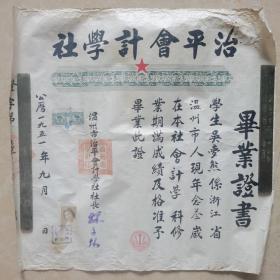 治平會計學社
畢業證書
學生吳夢熊係浙江省
温州市人現年叁歲
在本社會計學科修
業期滿成績及格准予
畢業此證
温州市治平會計學社社長
公曆一九五一年九月 日